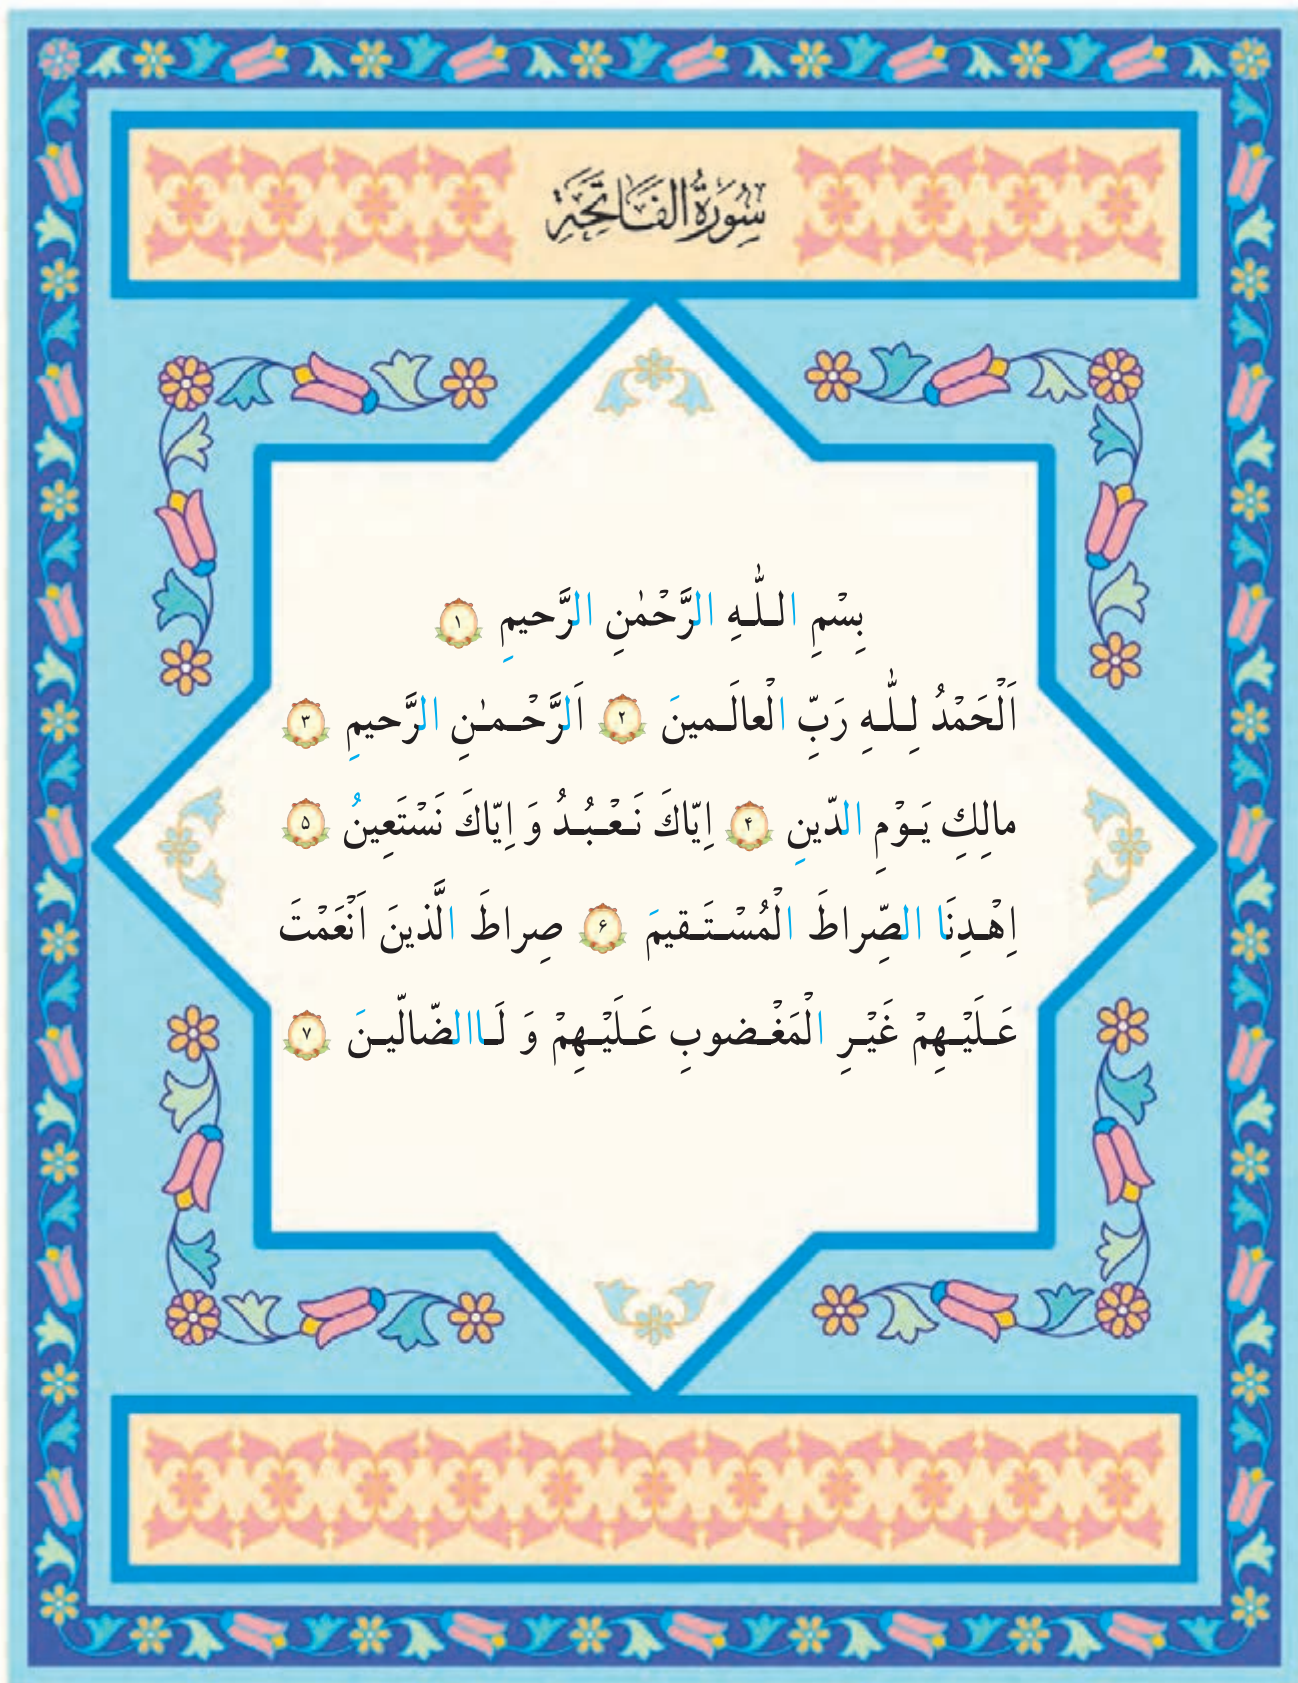 سُورَةُ الفَاتِحَةِ
بِسْمِ اللّٰهِ الرَّحْمٰنِ الرَّحیمِ ۱
اَلْحَمْدُ لِلّٰهِ رَبِّ الْعالَمینَ ۲ اَلرَّحْمٰنِ الرَّحیمِ ۳
مالِكِ یَوْمِ الدّینِ ۴ اِیّاكَ نَعْبُدُ وَ اِیّاكَ نَسْتَعینُ ۵
اِهْدِنَا الصِّراطَ الْمُسْتَقیمَ ۶ صِراطَ الَّذینَ اَنْعَمْتَ
عَلَیْهِمْ غَیْرِ الْمَغْضوبِ عَلَیْهِمْ وَ لَاالضّالّینَ ۷